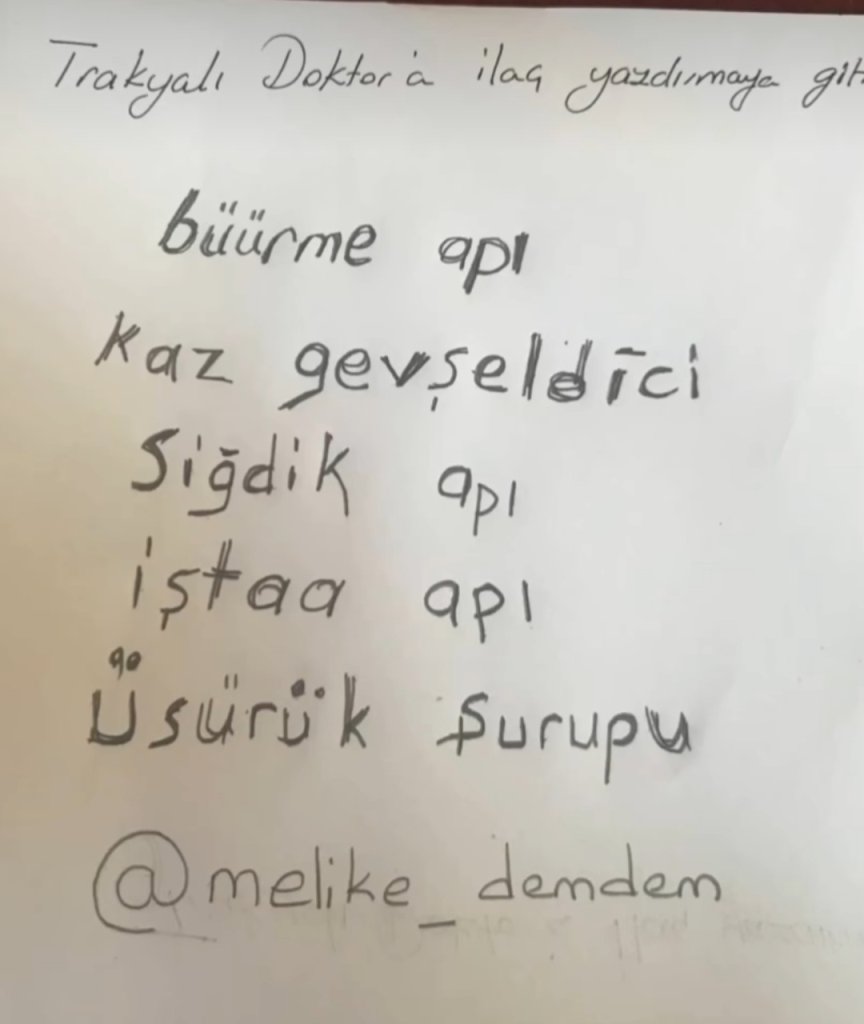 Trakyalı Doktor'a ilaç yazdırmaya
büürme apı
kaz gevşeldici
Siğdik apı
iştaa apı
Üsürük Şurupu
@melike_demdem